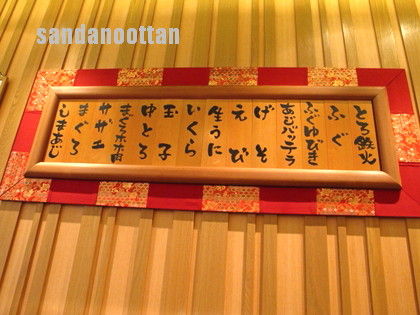 sandanoottan
とろ鉄火
ふぐ
ふぐゆびき
あじバッテラ
げそ
えび
生うに
いくら
玉子
中とろ
まぐろホホ肉
サザエ
まぐろ
しまあじ